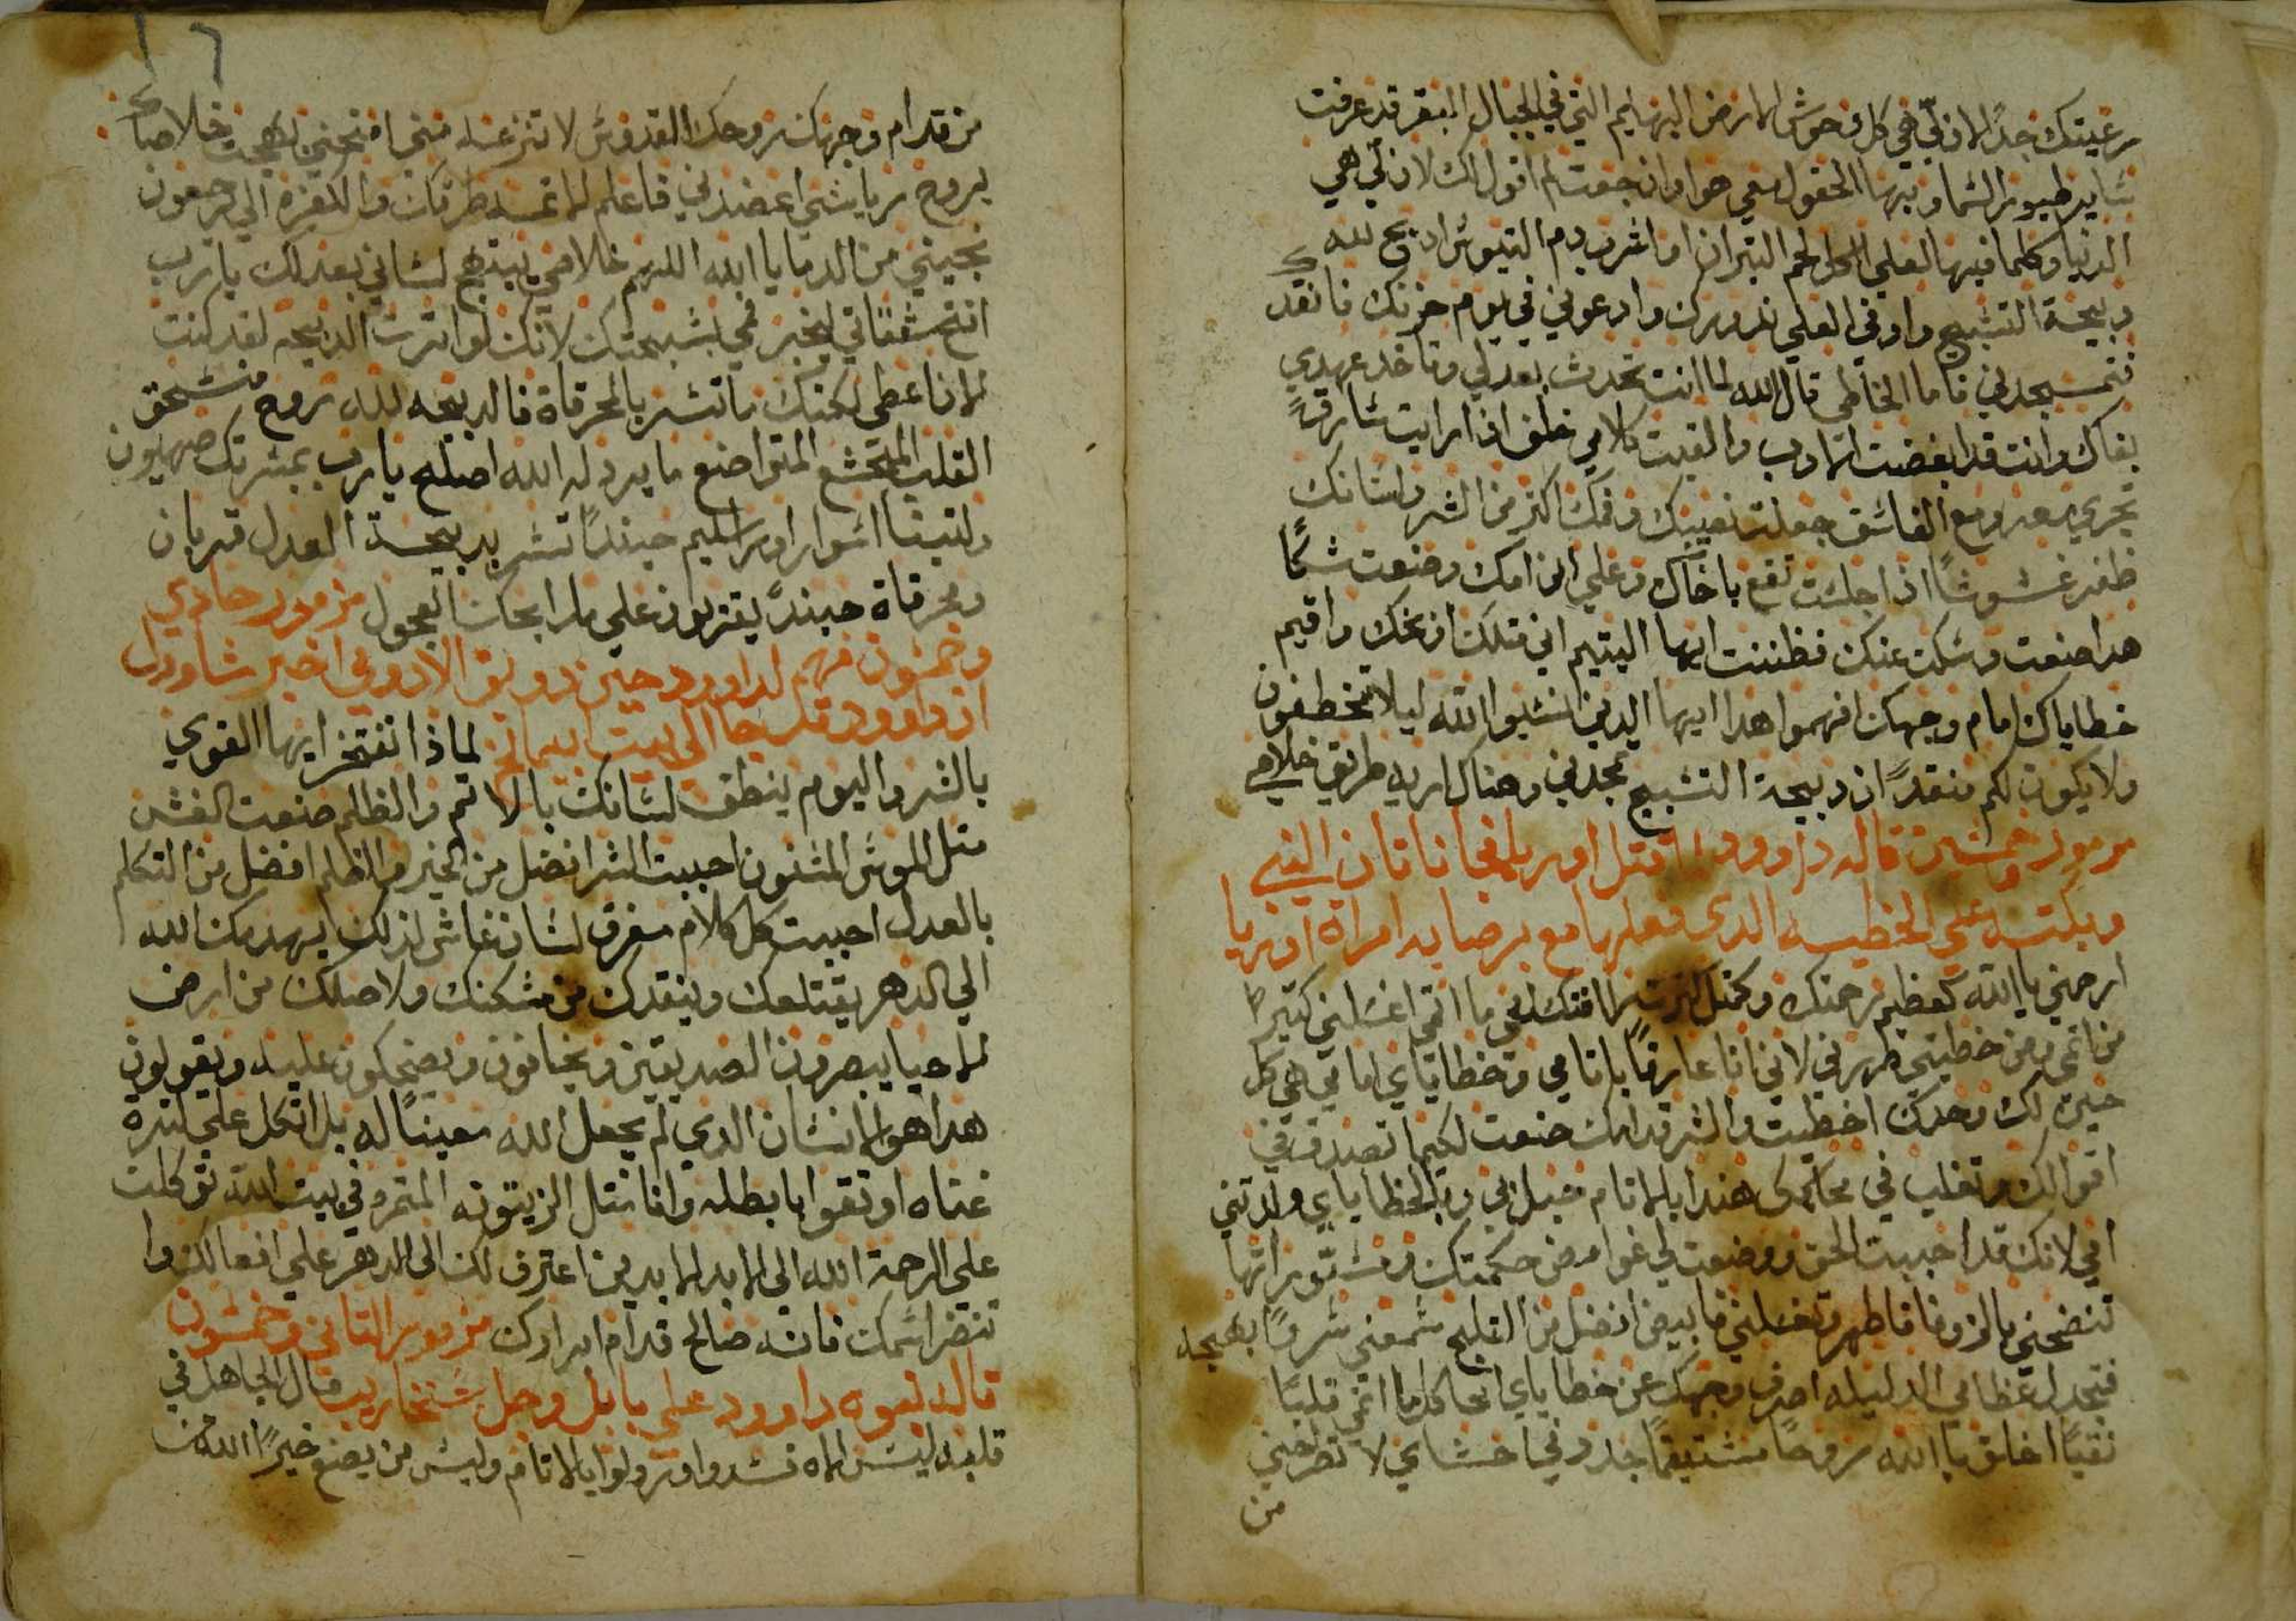 رعيتك جدًا لان لي في كل وحوش الارض البهايم التي في الجبال البقر قد عرفت
ساير طيور السما وبها الحقول معي هو وان جعت لم اقول لك لان لي هي
الدنيا وكلما فيها لعلي اكل لحم التيران او اشرب دم التيوس ادبح لله
دبيحة التسبيح واوفي العلي ندورك وادعوني في يوم حزنك فانقدك
فتمجدني فاما الخاطي قال الله لما انت تحدث بعدلي وتاخد عهدي
بفاك وانت قد ابغضت الادب والقيت كلامي خلف اذا رايت سارقً
تجري معه ومع الفاسق جعلت نصيبك وفمك اكتر من الشر ولسانك
ظفر غشوشًا اذا جلست تقع باخاك وعلي ابن امك وضعت شكًا
هدا صنعت وسكت عنك فظننت ايها اليتيم اني متلك ازبخك واقيم
خطاياك امام وجهك افهموا هدا ايها الدين انسيوا الله ليلا تخطفون
ولا يكون لكم منقدً ان دبيحة التسبيح تمجدني وهناك اريه طريق خلاصي
مزمور خمسين قاله داوود لما قتل اوريا فجا ناتان النبي
وبكته علي الخطيه الدي فعلها مع برصابه امراة اوريا
ارحمني يا الله كعظيم رحمتك وكمتل كترت رافتك امحي ما اتمي اغسلني كتيرًا
من اتمي ومن خطيتي طهرني لاني انا عارفًا باتامي وخطاياي امامي في كل
حين لك وحدك اخطيت والشر قدامك صنعت لكيما تصدق في
اقوالك وتغلب في محاكمتك هندا بالاتام حبل بي وبالخطاياي ولدتني
امي لانك قد احببت الحق ووضعت لي غوامض حكمتك ومستوراتها
تنضحني بالزوفا فاطهر وتغسلني فابيض افضل من التلج تسمعني سرورًا بهجه
فتجدل عظامي الدليله اصرف وجهك عن خطاياي امحا كل ما اتمي قلبًا
نقيًا اخلق يا الله روحًا مستقيمًا جدد في احشاي لا تطرحني
من
من قدام وجهك روحك القدوس لا تنزعه مني امنحني بهجت خلاصك
بروح رياسي اعضدني فاعلم الاتمه طرقك والكفره الي يرجعون
نجيني من الدمايا الله اله خلاصي يبتهج لساني بعدلك يا رب
افتح شفتاتي ليخبر فمي بتسبحتك لانك لو اترت الدبيحه لقد كنت
الان اعطي لكنك ما تسر بالمحرقاة فالدبيحه لله روح منسحق
القلب المتخشع المتواضع ما يرد له الله اصلح يا رب بمسرتك صهيون
ولتبنا اسوار اورشليم حيندً تسر بدبيحة العدل قربان
ومحرقاة حيندً يقربون علي مدابحك العجول مزمور حادي
وخمسون فهم لداوود حين دويق الادومي اخبر شاوول
ان داوود قد جا الى بيت ابيمالخ لماذا تفتخر ايها القوي
بالشر واليوم ينطق لسانك بالاتم والظلم صنعت الغش
متل الموس المسنون احببت الشر افضل من الخير والظلم افضل من التكلم
بالعدل احببت كل كلام مغرق لسان غاش لذلك يهدمك الله
الي الدهر يقتلعك وينقدك من مسكنك ولاصلك من ارض
الاحيا يبصرون الصديقين ويخافون ويضحكون عليه ويقولون
هدا هو الانسان الدي لم يجعل الله معينًا له بل اتكل علي كترة
غناه او تقوا بابطله وانا متل الزيتونه المتمره في بيت الله توكلت
علي الرحمة الله الي الابد الابدين اعترف لك الي الدهر علي افعالك وا
تنضر اسمك فانه صالح قدام ابرارك مزمور التاني وخمسون
قاله نبوه داوود علي بابل وحل سنحاريب قال الجاهل في
قلبه ليس الاه فسدوا ورولوا بالاتام وليس من يصنع خيرًا الله من